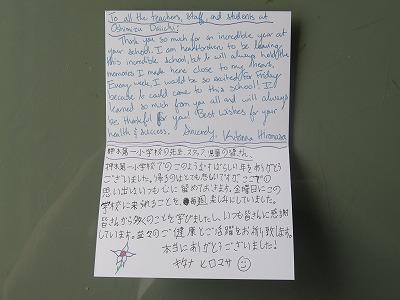 To all the teachers, staff, and students at
Oshimizu Daiichi:
Thank you so much for an incredible year at
your school. I am heartbroken to be leaving
this incredible school, but I will always hold the
memories I made here close to my heart.
Every week, I would be so excited for Friday
because I could come to this school! I
learned so much from you all and will always
be thankful for you! Best wishes for your
health & success. Sincerely,
押水第一小学校の先生、スタッフ、児童の皆さん、
押水第一小学校でのこのようなすばらしい年をありがとう
ございました。帰るのはとても悲しいですが、ここでの
思い出はいつも心に留めておきます。金曜日にこの
学校に来られることを、毎週楽しみにしていました。
皆さんから多くのことを学びましたし、いつも皆さんに感謝
しています。益々のご健康とご活躍をお祈り致します。
本当にありがとうございました！
キタナ ヒロマサ